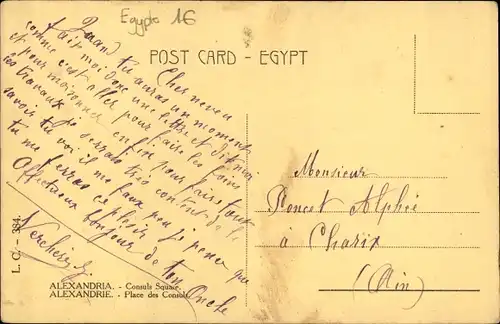 Egypte 16
POST CARD - EGYPT
Cher neveu
Quand tu auras un moment
fais moi donc une lettre et dis moi
comme c'est aller pour faire les foins
et pour moissonner enfin pour faire tous
les travaux je serrais très content de le
savoir tu voi il me faux peu je pense que
tu me ferras ce plaisir
Affectueux bonjour de ton Oncle
Monsieur
Poncet Alphée
à Charix
(Ain)
L. C. - 384
ALEXANDRIA. - Consuls Square.
ALEXANDRIE. - Place des Consuls